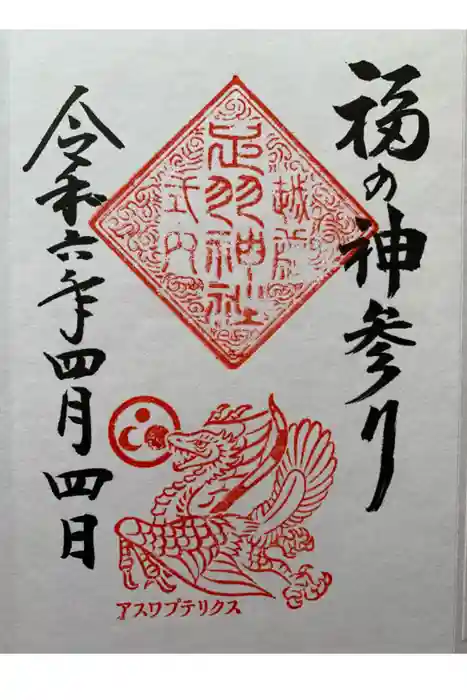 福の神参り
越前
足羽神社
式内
令和六年四月四日
アスワプテリクス